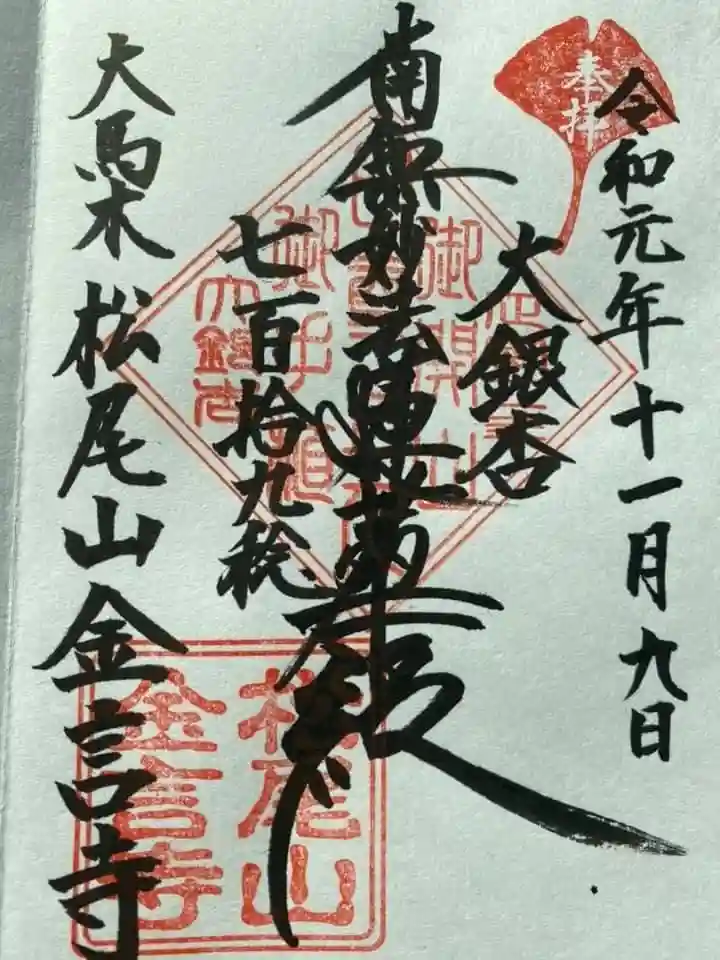 奉拝
令和元年十一月九日
大銀杏
南無妙法蓮華経
七百拾九
大馬木 松尾山金言寺
御開山
松尾山
金言寺